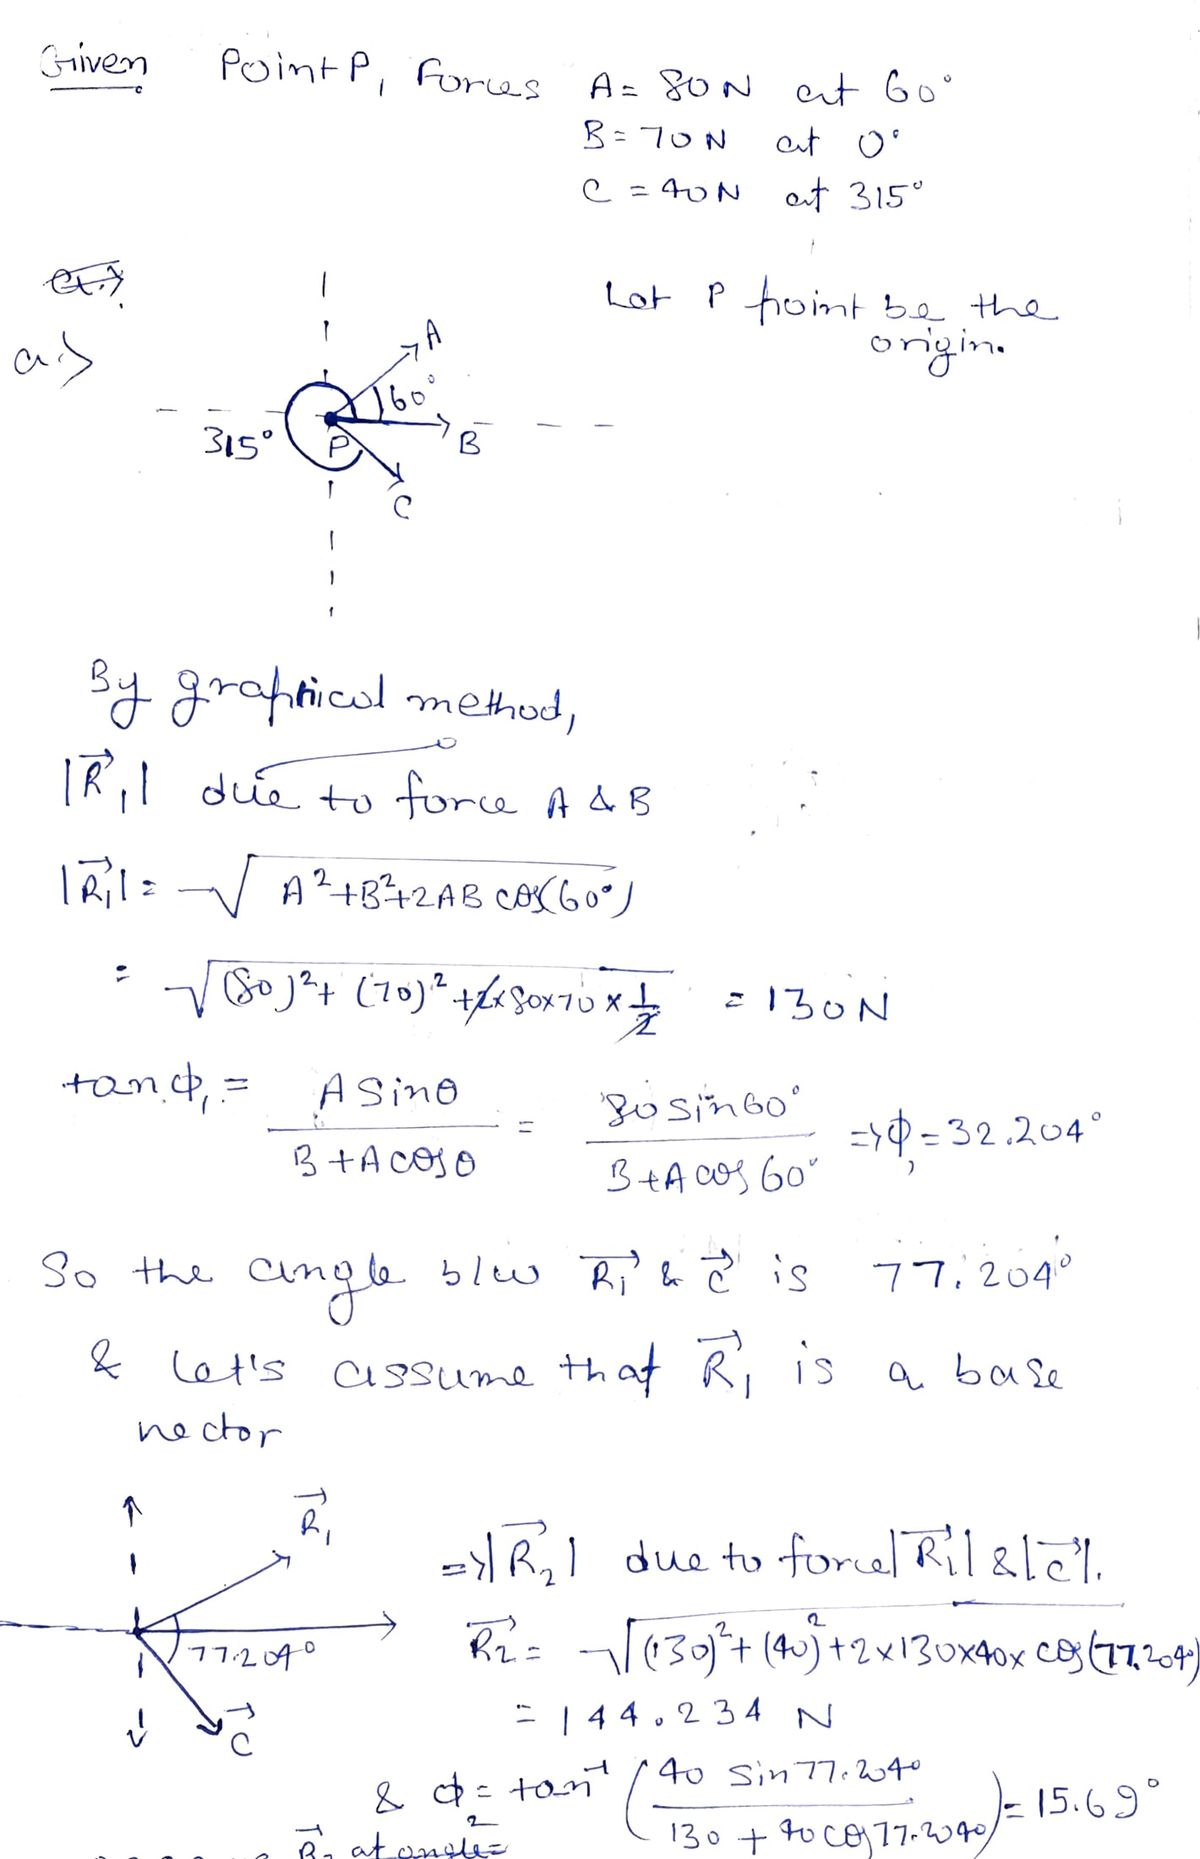 Given Point P, Forces A = 80N at 60°
B = 70N at 0°
C = 40N at 315°
Let P point be the
origin.
a.>
A
60°
315°
P
B
C
By graphical method,
|R⃗₁| due to force A & B
|R⃗₁| = √(A²+B²+2AB cos(60°))
= √((80)²+(70)²+2×80×70×1/2) = 130N
tan φ₁ = A Sinθ / (B+A cosθ) = 80 sin60° / (B+A cos 60°) => φ₁ = 32.204°
So the angle b/w R⃗₁ & C⃗ is 77.204°
& let's assume that R⃗₁ is a base
vector
R⃗₁
77.204°
C⃗
=> |R⃗₂| due to force |R⃗₁| & |C⃗|.
R⃗₂ = √((130)²+(40)²+2×130×40×cos(77.204))
= 144.234 N
& φ₂ = tan⁻¹(40 sin77.204° / (130 + 40 cos77.204°)) = 15.69°
R⃗₂ at angle =